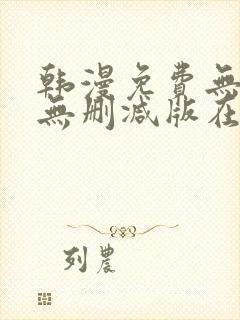 韩漫免費無
無删减版在
列農